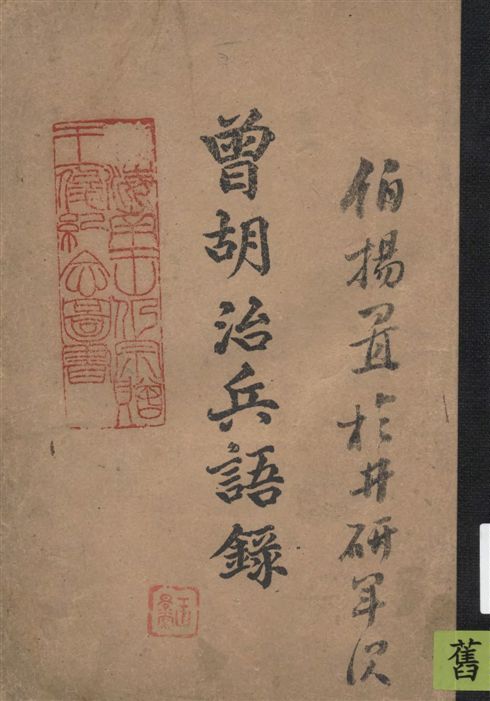 伯揚置於井研軍次
曾胡治兵語錄
舊